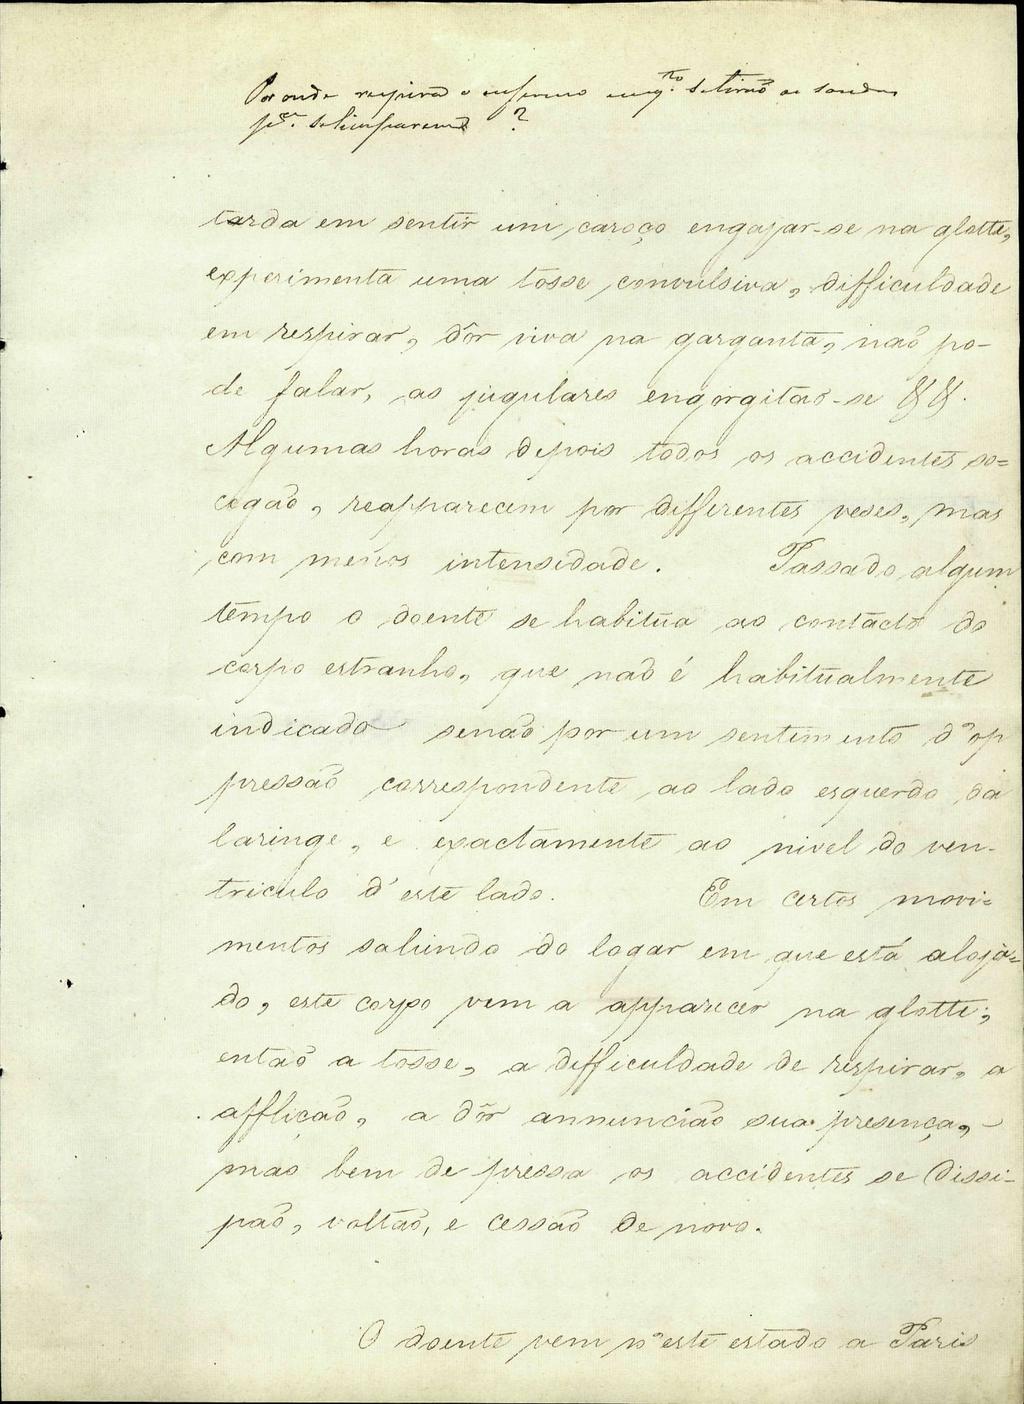 Por onde respira o enfermo emq.to se tirão as sondas
p.a se limparem ?
tarda em sentir um caroço engajar-se na glotte,
experimenta uma tosse convulsiva, difficuldade
em respirar, dôr viva na garganta, não po-
de falar, as jugulares engorgitão-se &&.
Algumas horas depois todos os accidentes so=
cegão, reapparecem por differentes veses, mas
com menos intensidade. Passado algum
tempo o doente se habitua ao contacto do
corpo estranho, que não é habitualmente
indicado senão por um sentimento d'op
pressão correspondente ao lado esquerdo da
laringe, e exactamente ao nivel do ven-
triculo d'este lado. Em certos movi=
mentos sahindo do logar em que está aloja=
do, este corpo vem a apparecer na glotte;
então a tosse, a difficuldade de respirar, a
afflicão, a dôr annuncião sua presença,
mas bem de pressa os accidentes se dissi-
pão, voltão, e cessão de novo.
O doente vem n'este estado a Paris